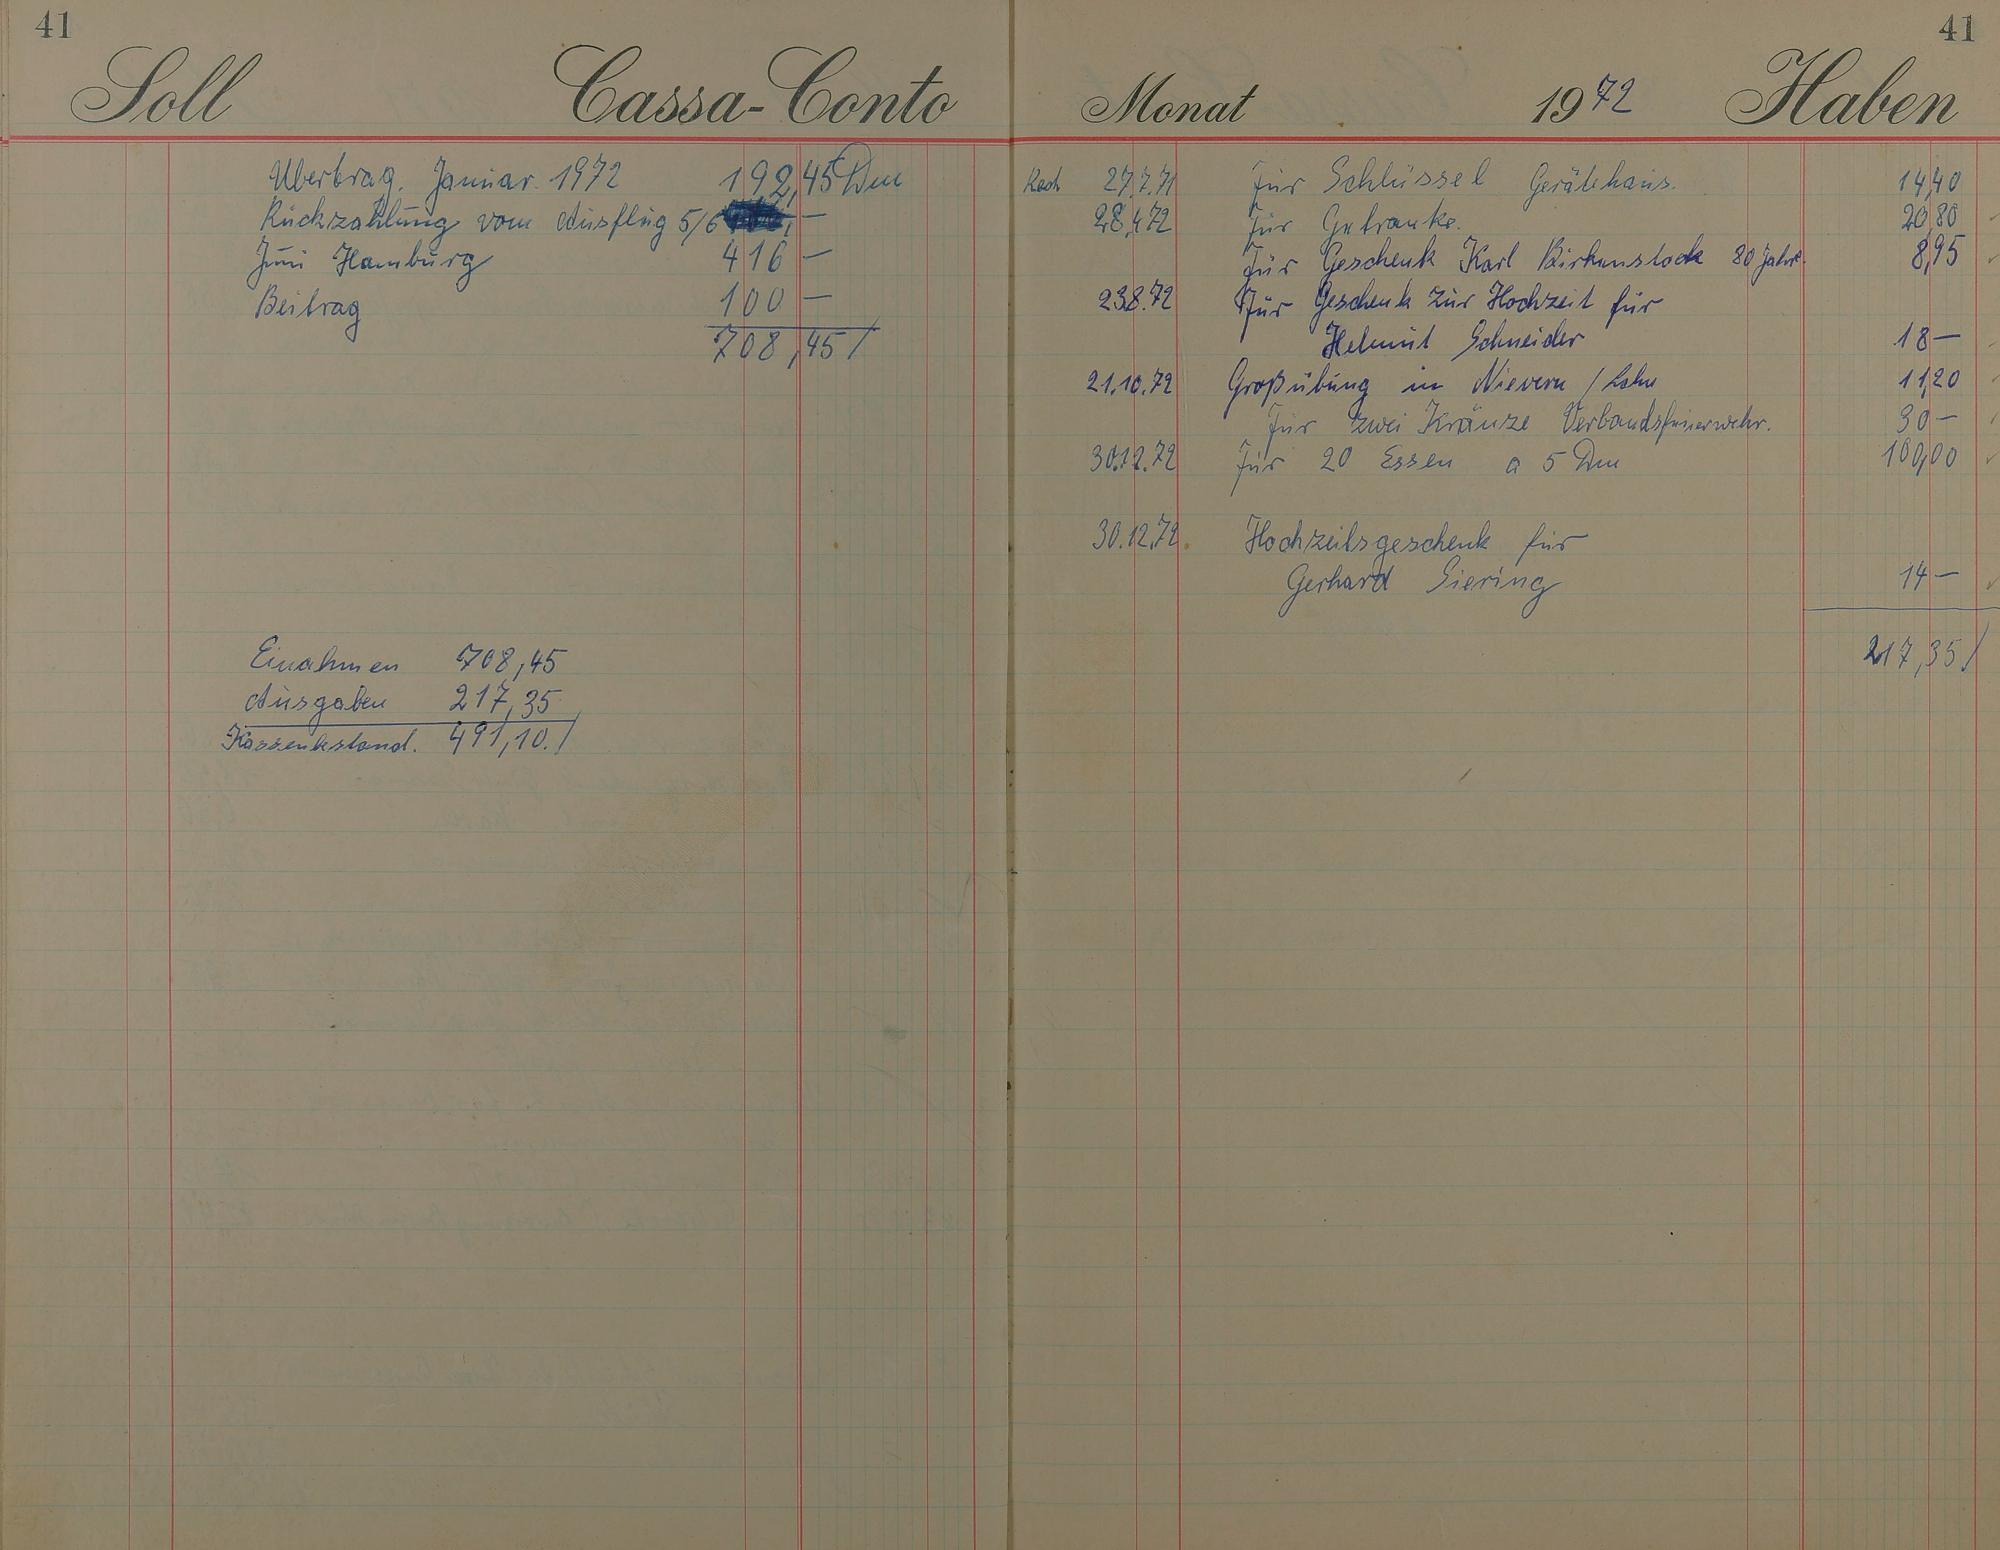 41
Soll Cassa-Conto
Übertrag. Januar. 1972 192,45 Dm
Rückzahlung vom Ausflug 5/6 —
Juni Hamburg 416 —
Beitrag 100 —
708,45/
Einahmen 708,45
Ausgaben 217,35
Kassenbstand. 491,10./
41
Monat 1972 Haben
27.7.71 für Schlüssel Gerätehaus. 14,40
28.4.72 für Getranke. 20,80
für Geschenk Karl Birkenstock 80 Jahre. 8,95
23.8.72 für Geschenk zur Hochzeit für
Helmut Schneider 18 —
21.10.72 Großübung in Nievern / Lahn 11,20
für zwei Kränze Verbandsfeuerwehr. 30 —
30.12.72 für 20 Essen a 5 Dm 100,00
30.12.72 Hochzeitsgeschenk für
Gerhard Siering 14 —
217,35/